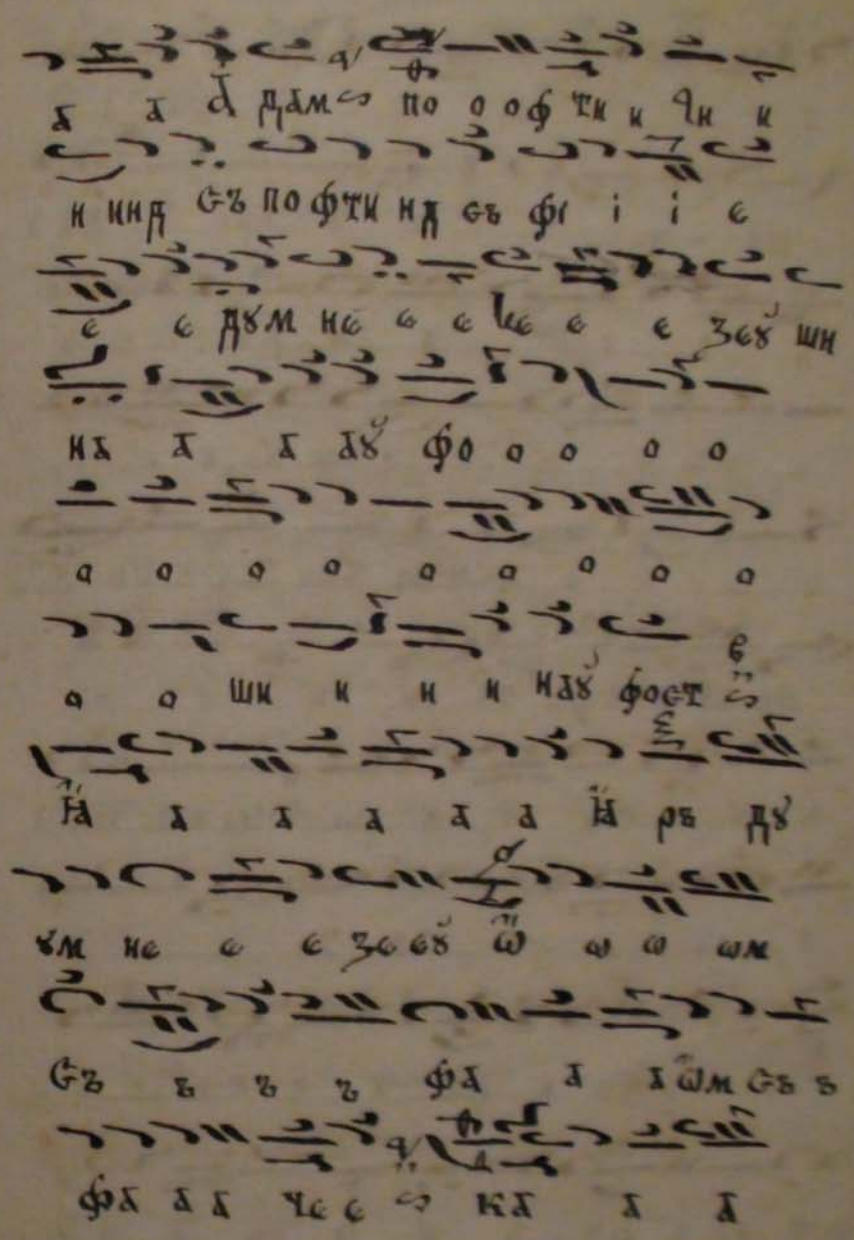 а а А дам по о оф ти и чи и
и инд съ пофти нд съ фі і і є
є є дꙋм нє є є ꙟє є є зєꙋ ши
на а а аꙋ фо о о о о
о о о о о о о о о
о о ши и и и наꙋ фост
Ꙗ а а а а а ꙗ ръ дꙋ
ꙋм нє є є зє єꙋ ѡ ѡ ѡ ѡм
Съ ъ ъ ъ фа а а ѡм съ ъ
фа а а чє є ка а а